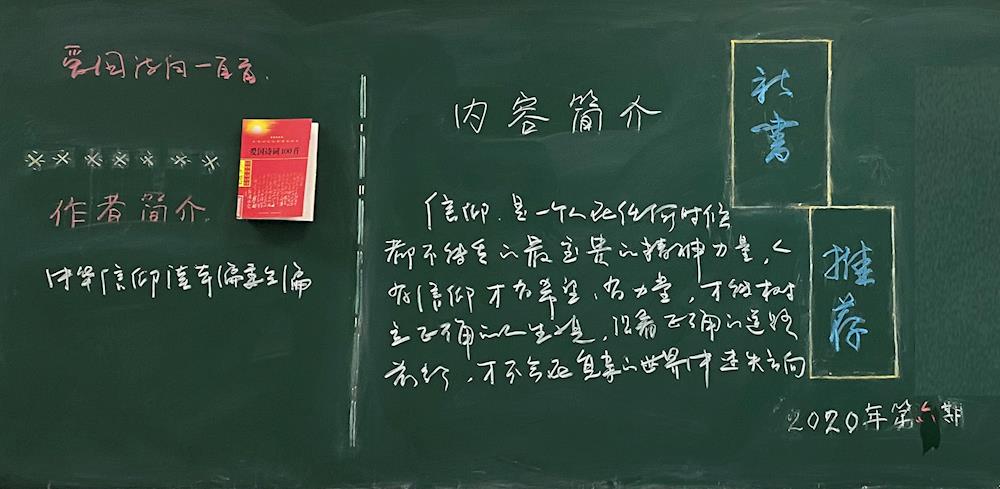 爱国诗词一百首
※※※※※※※
爱国诗词100首
作者简介
中华信仰读本编委会编
内容简介
信仰是一个人在任何时候
都不能丢的最宝贵的精神力量,人
有信仰才有希望,有力量,才能树
立正确的人生观,沿着正确的道路
前行,才不会在复杂的世界中迷失方向
新书
推荐
2020年第六期